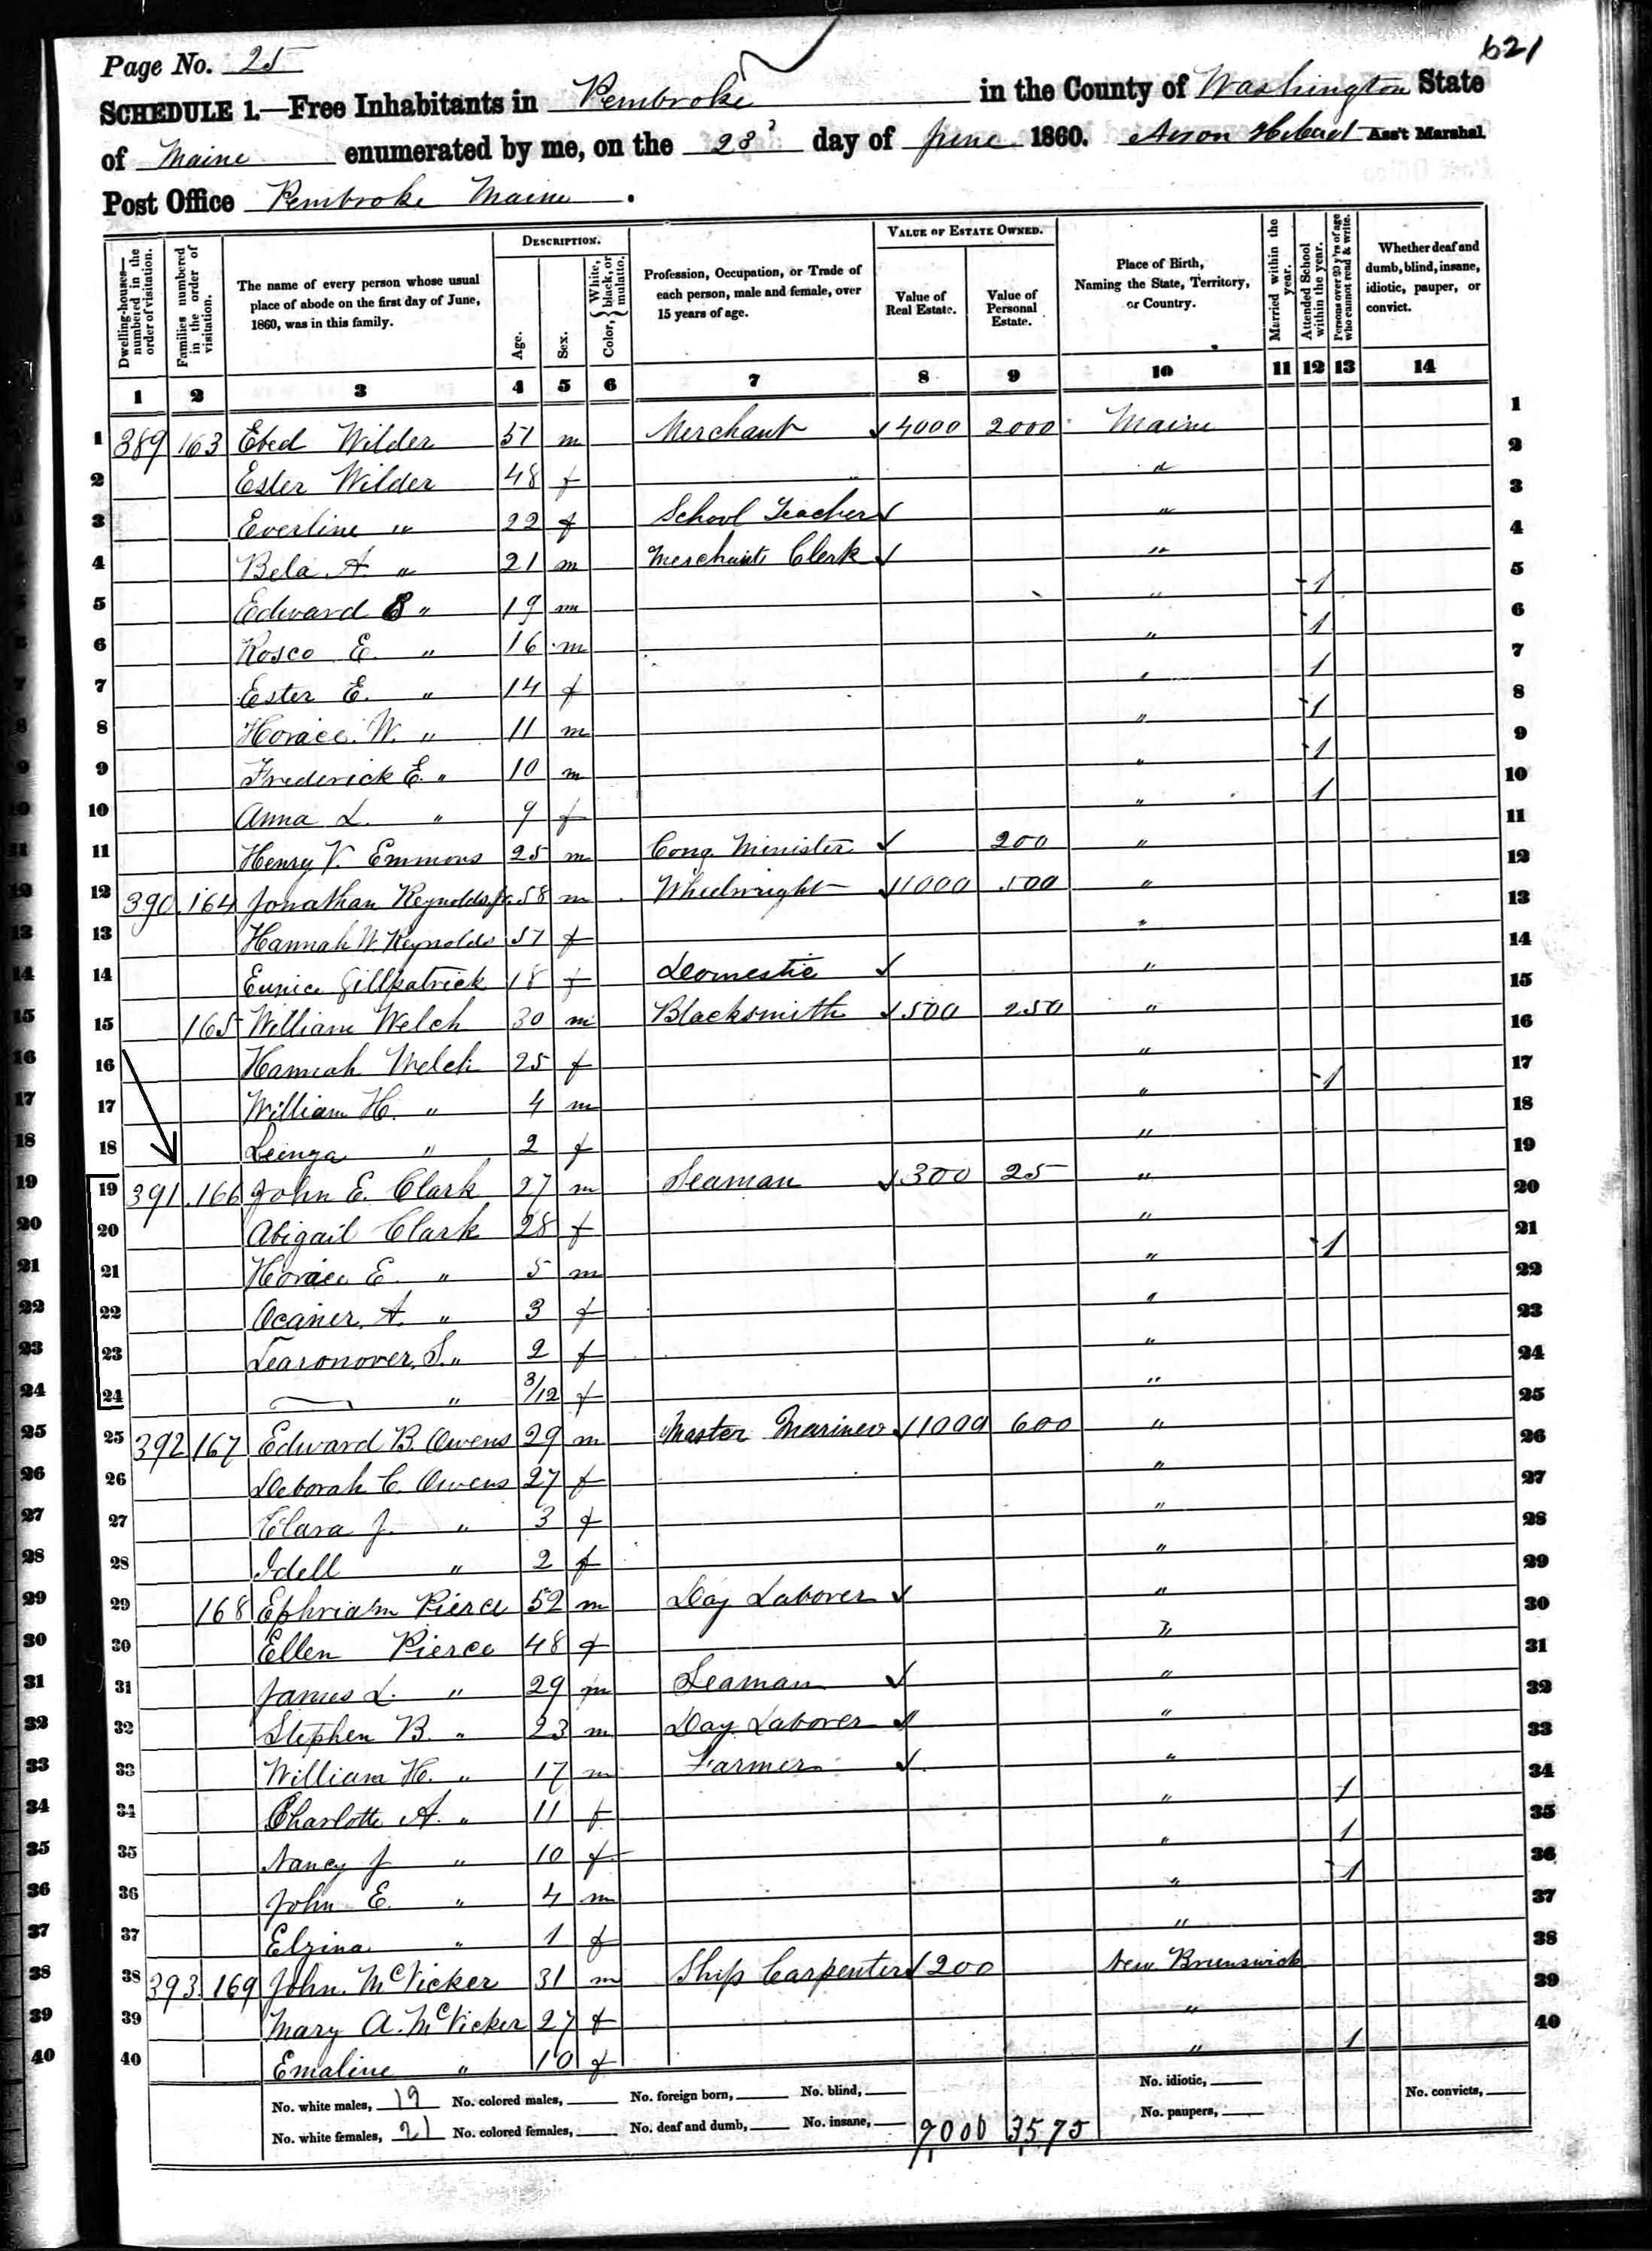 Page No. 25
621
SCHEDULE 1.—Free Inhabitants in Pembroke in the County of Washington State
of Maine enumerated by me, on the 28 day of June 1860. Aaron Ass't Marshal
Post Office Pembroke Maine.
DESCRIPTION. VALUE OF ESTATE OWNED.
Dwelling-houses—numbered in the order of visitation. Families numbered in the order of visitation. The name of every person whose usual place of abode on the first day of June, 1860, was in this family. Age. Sex. Color, { White, black, or mulatto. Profession, Occupation, or Trade of each person, male and female, over 15 years of age. Value of Real Estate. Value of Personal Estate. Place of Birth, Naming the State, Territory, or Country. Married within the year. Attended School within the year. Persons over 20 y'rs of age who cannot read & write. Whether deaf and dumb, blind, insane, idiotic, pauper, or convict.
1 2 3 4 5 6 7 8 9 10 11 12 13 14
1 389 163 Ebed Wilder 51 m Merchant 4000 2000 Maine 1
2 Ester Wilder 48 f " 2
3 Everline " 22 f School Teacher " 3
4 Bela A. " 21 m Merchants Clerk " 4
5 Edward " 19 m " 1 5
6 Rosco E. " 16 m " 1 6
7 Ester E. " 14 f " 1 7
8 Horace W. " 11 m " 1 8
9 Frederick E. " 10 m " 1 9
10 Anna L. " 9 f " 1 10
11 Henry V. Emmons 25 m Cong Minister 200 " 11
12 390 164 Jonathan Reynolds Jr 58 m Wheelwright 1000 500 " 12
13 Hannah W. Reynolds 57 f " 13
14 Eunice Gillpatrick 18 f Domestic " 14
15 165 William Welch 30 m Blacksmith 500 250 " 15
16 Hannah Welch 25 f " 16
17 William H. " 4 m " 1 17
18 " 2 f " 18
19 391 166 John E. Clark 27 m Seaman 300 25 " 19
20 Abigail Clark 28 f " 20
21 Horace E. " 5 m " 1 21
22 Ocaner A. " 3 f " 22
23 Learonover S. " 2 f " 23
24 — " 3/12 f " 24
25 392 167 Edward B. Owens 29 m Master Mariner 1000 600 " 25
26 Deborah C. Owens 27 f " 26
27 Clara J. " 3 f " 27
28 Idell " 2 f " 28
29 168 Ephriam Pierce 52 m Day Laborer " 29
30 Ellen Pierce 48 f " 30
31 James L. " 29 m Seaman " 31
32 Stephen B. " 23 m Day Laborer " 32
33 William H. " 17 m Farmer " 33
34 Charlotte A. " 11 f " 1 34
35 Nancy J " 10 f " 1 35
36 John E. " 4 m " 1 36
37 Elzina " 1 f " 37
38 393 169 John McVicker 31 m Ship Carpenter 200 New Brunswick 38
39 Mary A. McVicker 27 f " 39
40 Emaline " 10 f " 1 40
No. white males, 19 No. colored males, No. foreign born, No. blind, No. idiotic, No. convicts,
No. white females, 21 No. colored females, No. deaf and dumb, No. insane, 9,000 3,575 No. paupers,